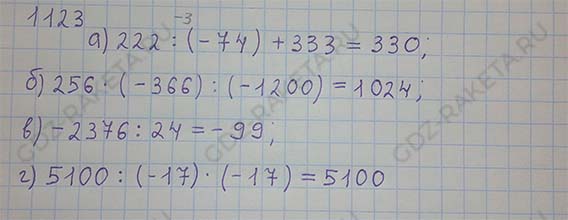 1123
-3
а) 222 : (-74) + 333 = 330;
б) 256 · (-366) : (-1200) = 1024;
в) -2376 : 24 = -99;
г) 5100 : (-17) · (-17) = 5100
GDZ-RAKETA.RU
GDZ-RAKETA.RU
GDZ-RAKETA.RU